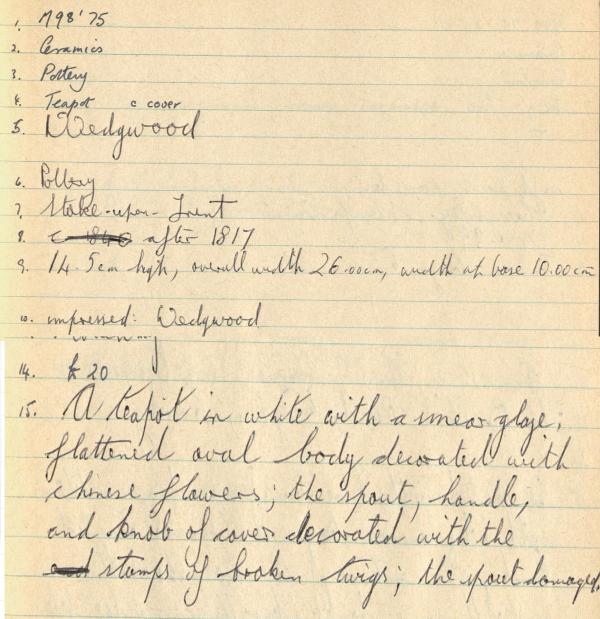 1. M98'75
2. Ceramics
3. Pottery
4. Teapot c cover
5. Wedgwood
6. Pottery
7. Stoke-upon-Trent
8. c 1840 after 1817
9. 14.5cm high, overall width 26.00cm, width at base 10.00cm
10. impressed: Wedgwood
14. £20
15. A teapot in white with a smear glaze,
flattened oval body decorated with
chinese flowers; the spout, handle,
and knob of cover decorated with the
and stumps of broken twigs; the spout damaged,